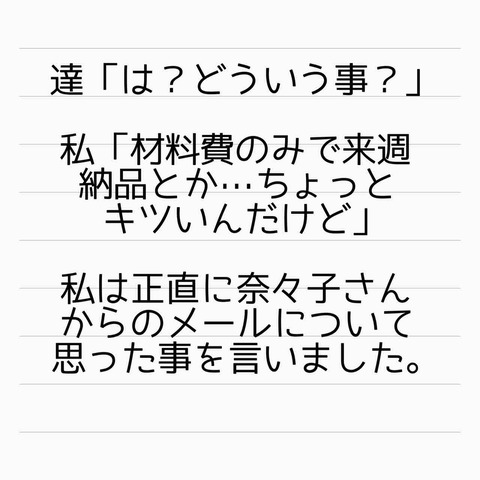 達「は？どういう事？」
私「材料費のみで来週
納品とか…ちょっと
キツいんだけど」
私は正直に奈々子さん
からのメールについて
思った事を言いました。